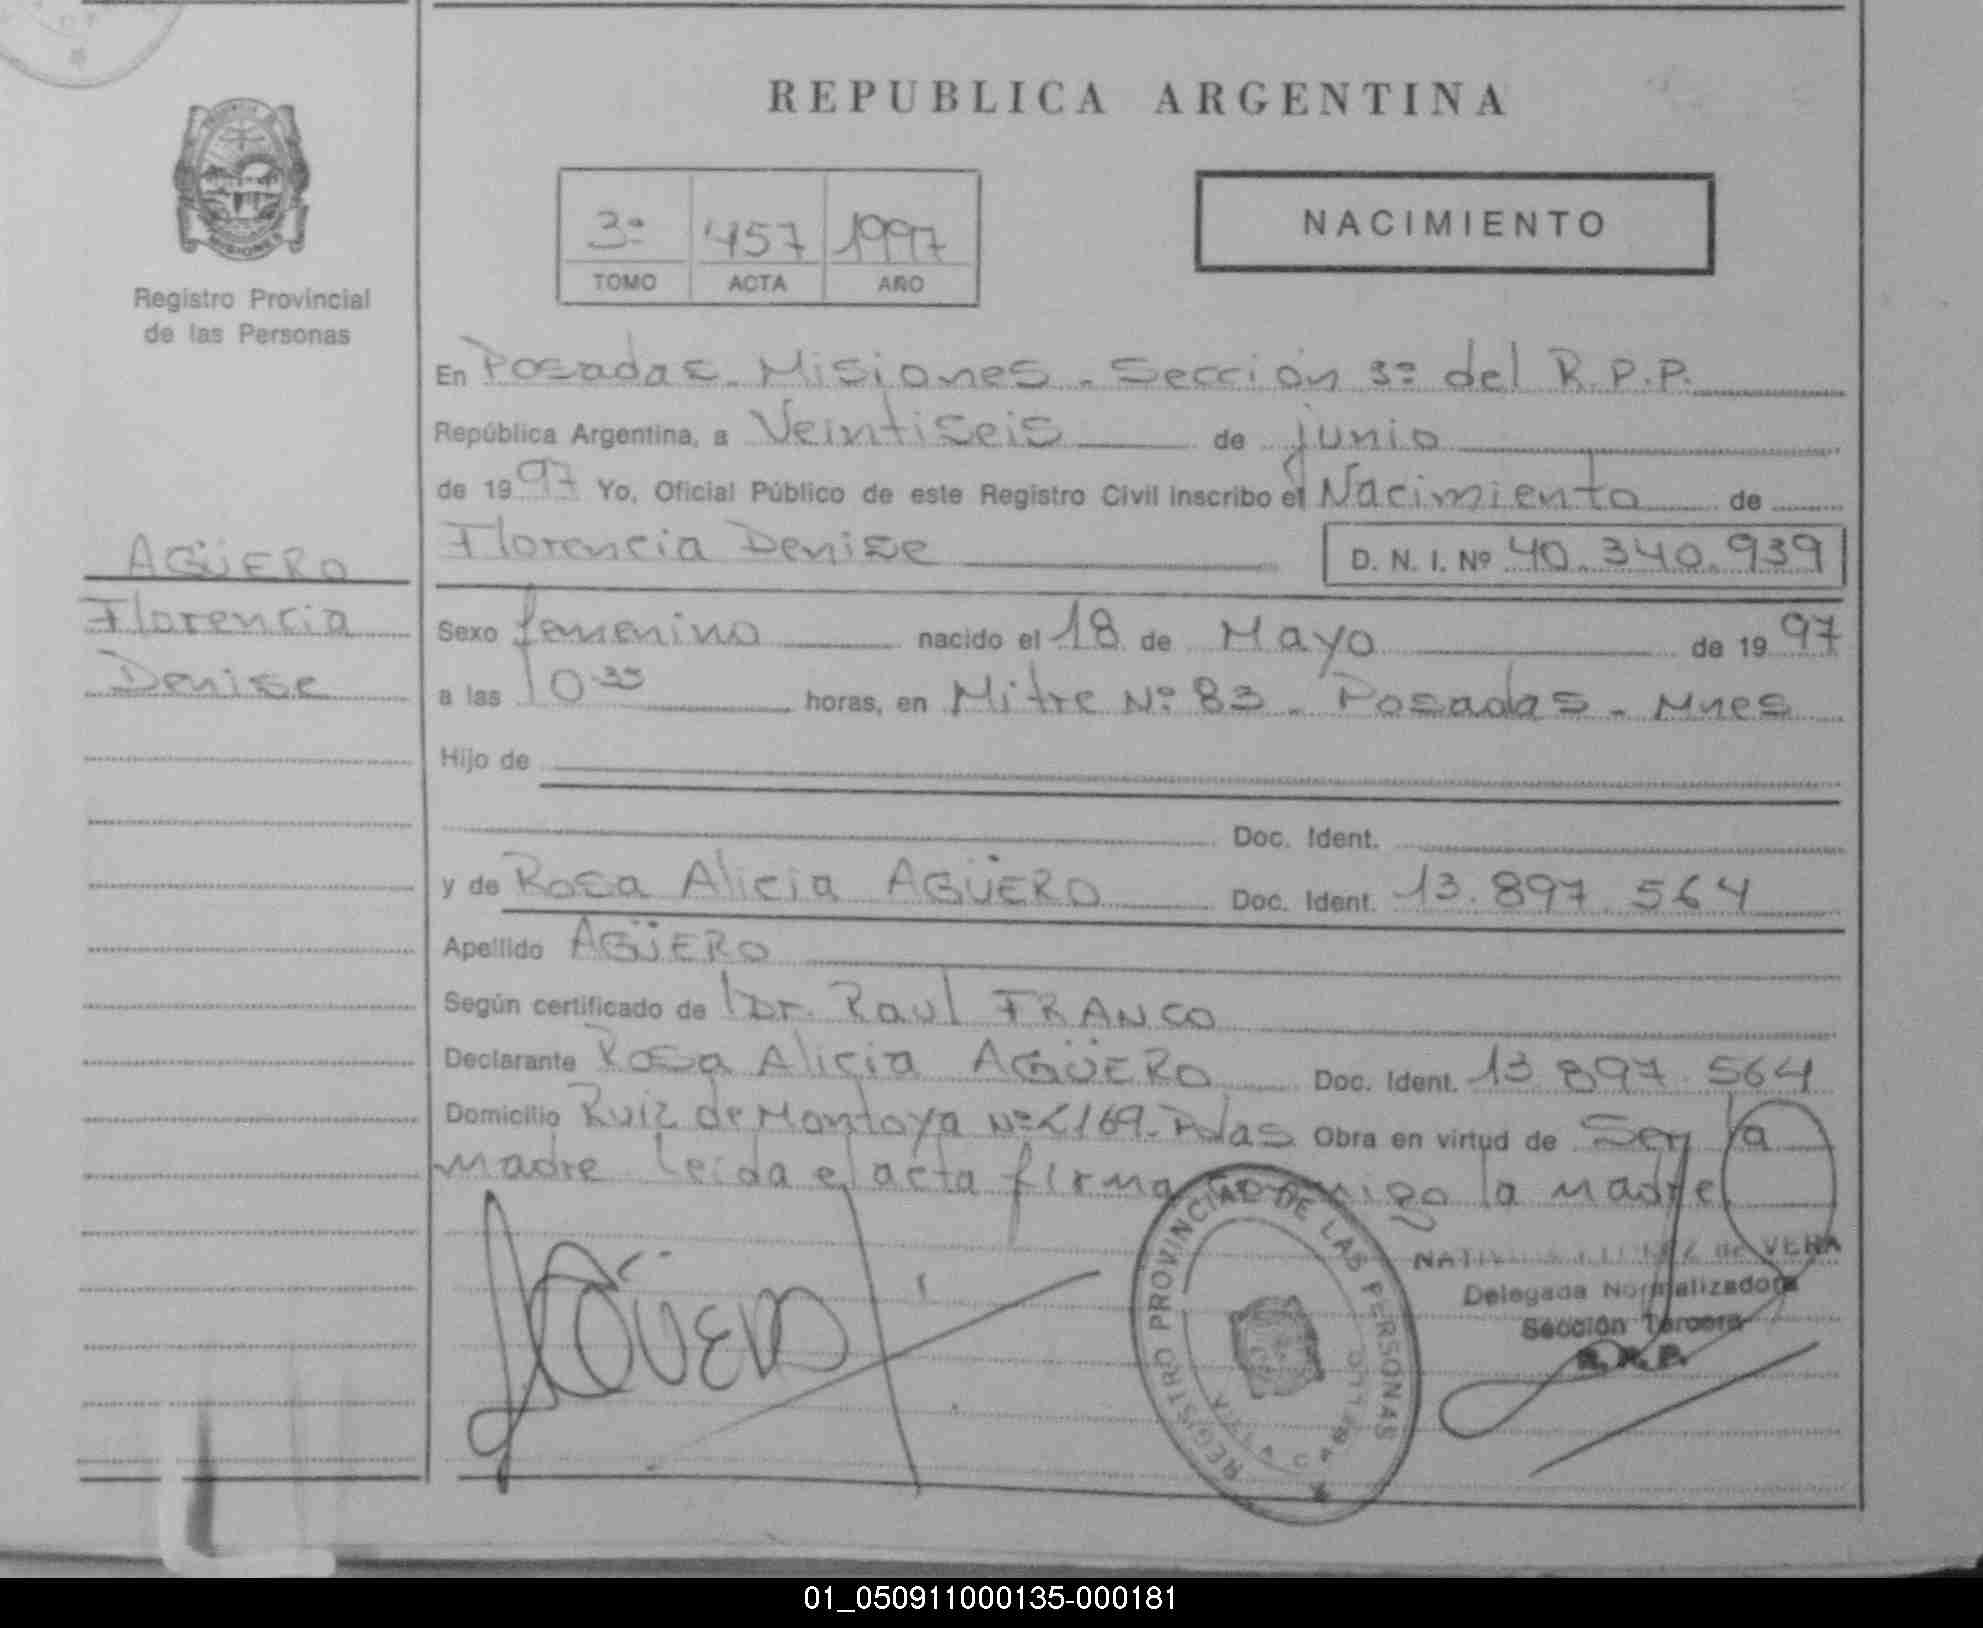 REPUBLICA ARGENTINA
3º 457 1997
TOMO ACTA AÑO
NACIMIENTO
MISIONES
Registro Provincial
de las Personas
En Posadas - Misiones - Sección 3º del R.P.P.
República Argentina, a Veintiseis de junio
de 1997 Yo, Oficial Público de este Registro Civil inscribo el Nacimiento de
Florencia Denise D. N. I. Nº 40.340.939
AGÜERO
Florencia
Denise
Sexo femenino nacido el 18 de Mayo de 1997
a las 10 35 horas, en Mitre Nº 83 - Posadas - Mnes
Hijo de
Doc. Ident.
y de Rosa Alicia AGÜERO Doc. Ident. 13.897.564
Apellido AGÜERO
Según certificado de Dr. Raul FRANCO
Declarante Rosa Alicia AGÜERO Doc. Ident. 13.897.564
Domicilio Ruiz de Montoya Nº 2169 - Pdas Obra en virtud de Ser la
madre leida el acta firma conmigo la madre
AGÜERO
REGISTRO PROVINCIAL DE LAS PERSONAS
VILLA CABELLO
de VERA
Delegada Normalizadora
Sección Tercera
R. P. P.
01_050911000135-000181